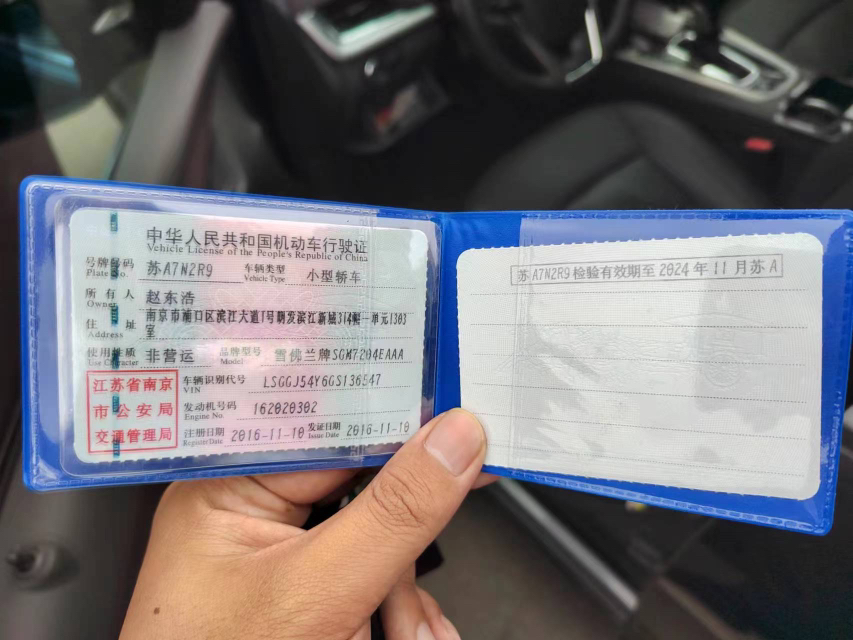 中华人民共和国机动车行驶证
Vehicle License of the People's Republic of China
号牌号码 苏A7N2R9 车辆类型 小型轿车
Plate No. Vehicle Type
所有人 赵东浩
Owner
住址 南京市浦口区滨江大道1号明发滨江新城314幢一单元1303室
Address
使用性质 非营运 品牌型号 雪佛兰牌SGM7204EAAA
Use Character Model
江苏省南京市公安局交通管理局
车辆识别代号 LSGGJ54Y6GS136547
VIN
发动机号码 162020302
Engine No.
注册日期 2016-11-10 发证日期 2016-11-10
Register Date Issue Date
苏A7N2R9 检验有效期至 2024 年 11 月苏 A